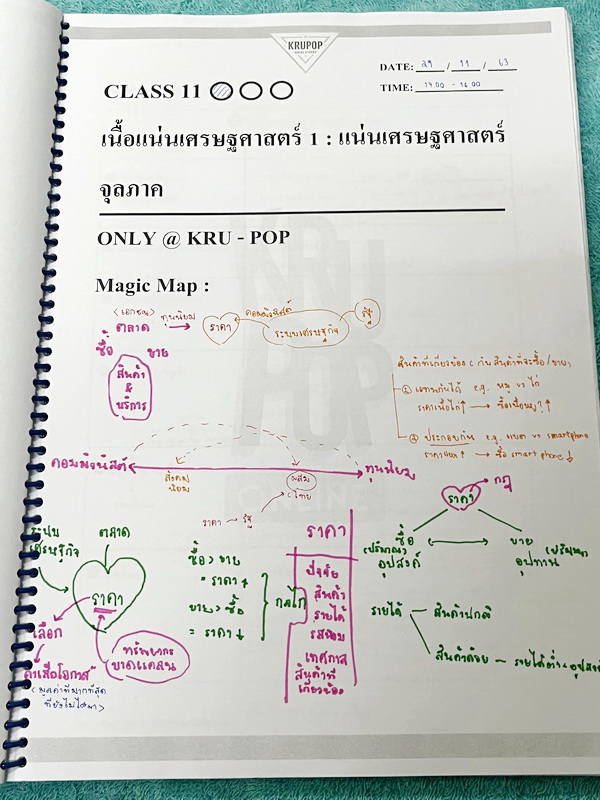 KRUPOP
DATE: 29 / 11 / 63
CLASS 11
TIME: 14.00 - 16.00
เนื้อแน่นเศรษฐศาสตร์ 1 : แน่นเศรษฐศาสตร์
จุลภาค
ONLY @ KRU - POP
Magic Map :
<เอกชน> ทุนนิยม
ตลาด
ราคา
คอมมิวนิสต์
ระบบเศรษฐกิจ
รัฐ
ซื้อ ขาย
สินค้า
&
บริการ
สินค้าที่เกี่ยวข้อง c กับสินค้าที่จะซื้อ/ขาย
① แทนกันได้ e.g. หมู vs ไก่
ราคาเนื้อไก่↑ → ซื้อเนื้อหมู?↑
② ประกอบกัน e.g. แบต vs smartphone
ราคาแบต↑ → ซื้อ smart phone↓
คอมมิวนิสต์
สังคม
นิยม
ผสม
c ไทย
ทุนนิยม
ราคา → รัฐ
ราคา
กฎ
ซื้อ
(ปริมาณ)
อุปสงค์
ขาย
(ปริมาณ)
อุปทาน
ระบบ
เศรษฐกิจ
ตลาด
ราคา
เลือก
ค่าเสียโอกาส
<มูลค่าที่มากที่สุด
ที่ยังไม่ได้มา>
ทรัพยากร
ขาดแคลน
ซื้อ > ขาย
= ราคา↑
ขาย > ซื้อ
= ราคา↓
กลไก
ราคา
ปัจจัย
สินค้า
รายได้
รสนิยม
เทศกาล
สินค้าที่
เกี่ยวข้อง
รายได้
สินค้าปกติ
สินค้าด้อย → รายได้ต่ำ = อุปสงค์